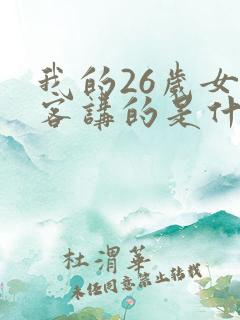 我的26歲女
客講的是什
杜渭華
未经同意禁止转载